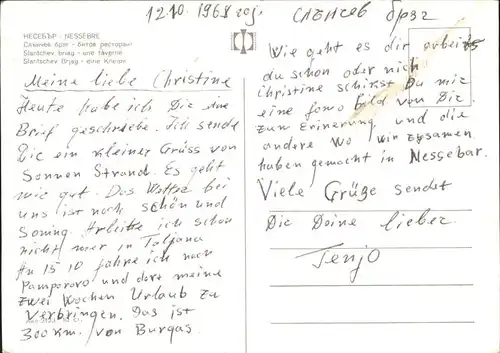 12.10.1968 год. Слънчев бряг
НЕСЕБЪР - NESSEBRE
Слънчев бряг - битов ресторант
Slantchev briag - une taverne
Slantschev Brjag - eine Kneipe
Meine liebe Christine
Heute habe ich Dir eine
Brief geschriebe. Ich sende
Dic ein kleiner Grüss von
Sonnen Strand. Es geht
mir gut. Das Wetter bei
uns ist noch schön und
Soning. Arbeite ich schon
nicht mer in Taljana
An 15 10 fahre ich nach
Pamporovo und dore meine
zwei Wochen Urlaub zu
Verbringen. Das ist
300 km. von Burgas.
Wie geht es dir arbeites
du schon oder nich
Christine schikst Du mir
eine fowo bild von Dic
zum Erinerung und die
andere wo wir zusamen
haben gemacht in Nessebar.
Viele Grüße sendet
Dic Deine lieber
Tenjo